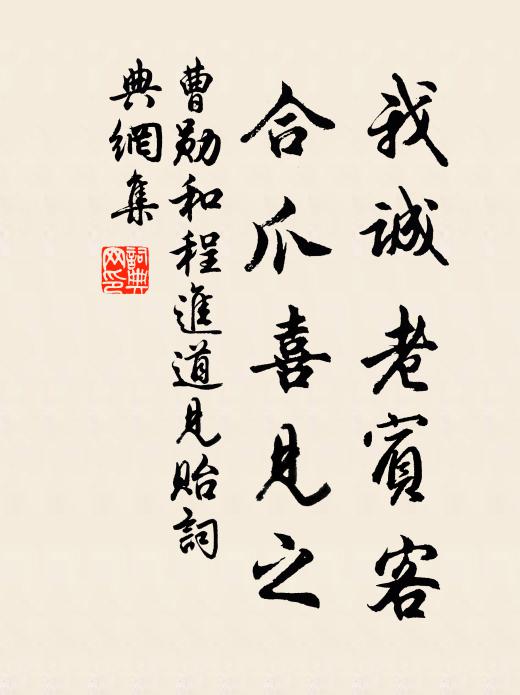 我誠老賓客
合爪喜見之
曹勛和程進道見貽詞
典網集
詞典網印